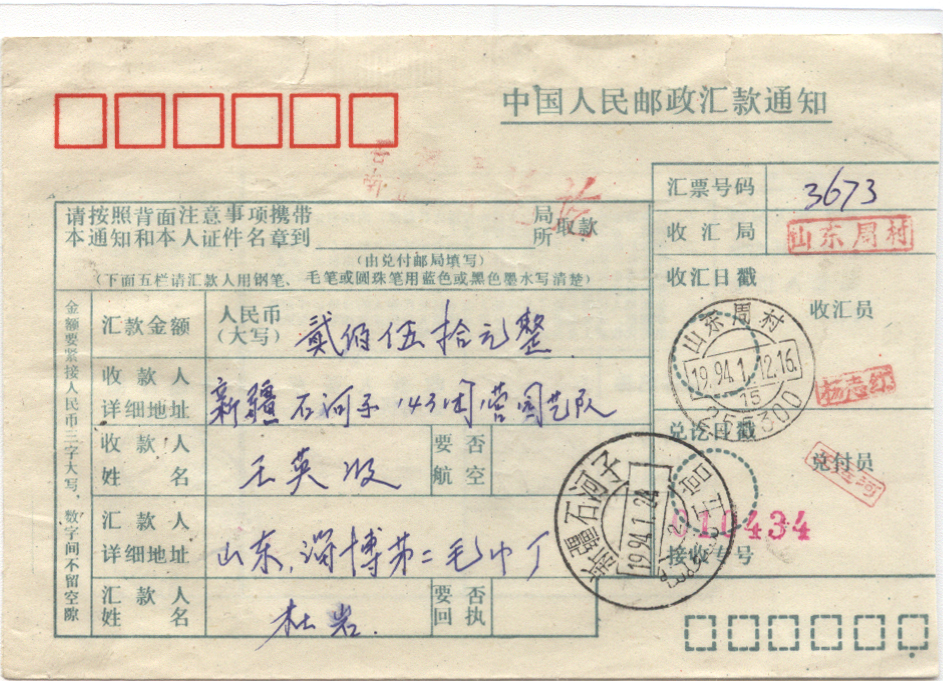 中国人民邮政汇款通知
汇票号码 3673
收汇局 山东周村
收汇日戳
收汇员
山东周村
1994.1.12.16
15
255300
兑讫日戳
兑付员
石河子
1994.1.24
010434
接收专号
请按照背面注意事项携带
本通知和本人证件名章到 局所 取款
(由兑付邮局填写)
(下面五栏请汇款人用钢笔、毛笔或圆珠笔用蓝色或黑色墨水写清楚)
金额要紧接人民币三字大写，数字间不留空隙
汇款金额 人民币(大写) 贰佰伍拾元整
收款人详细地址 新疆石河子143团营园艺队
收款人姓名 王英
要否航空
汇款人详细地址 山东,淄博第二毛巾厂
汇款人姓名 杜岩.
要否回执